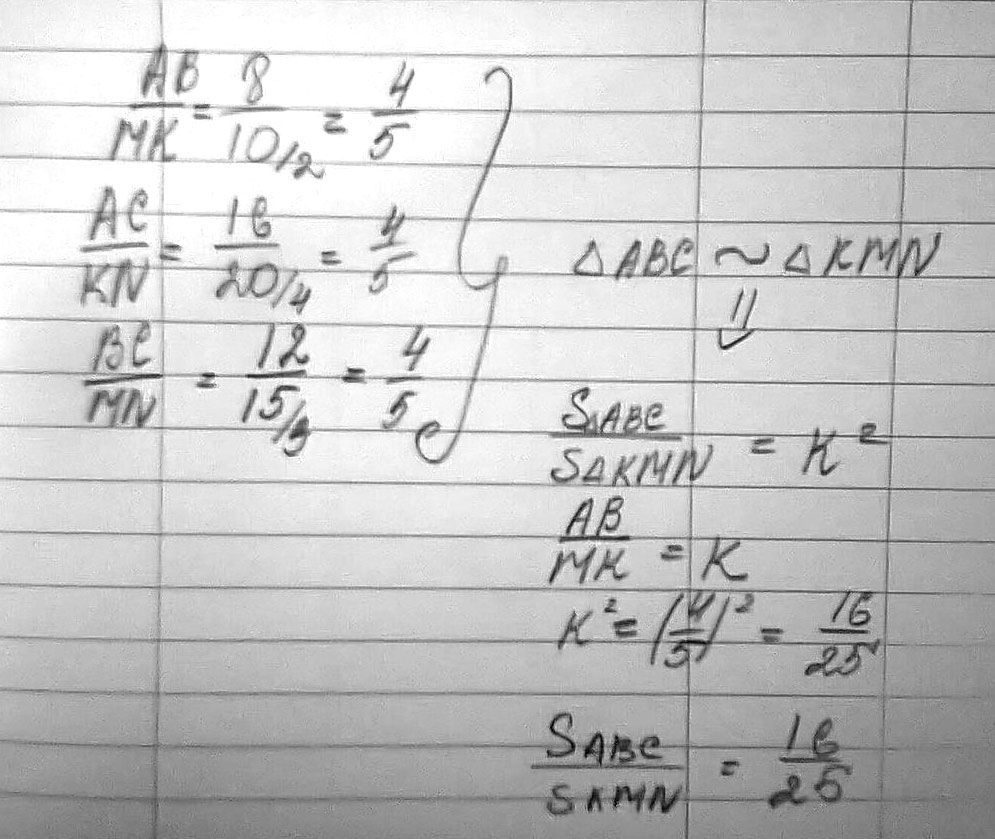 AB/MK = 8/10/2 = 4/5
AC/KN = 16/20/4 = 4/5
BC/MN = 12/15/3 = 4/5
△ABC ~ △KMN
⇓
S△ABC/S△KMN = K²
AB/MK = K
K² = (4/5)² = 16/25
SABC/SKMN = 16/25